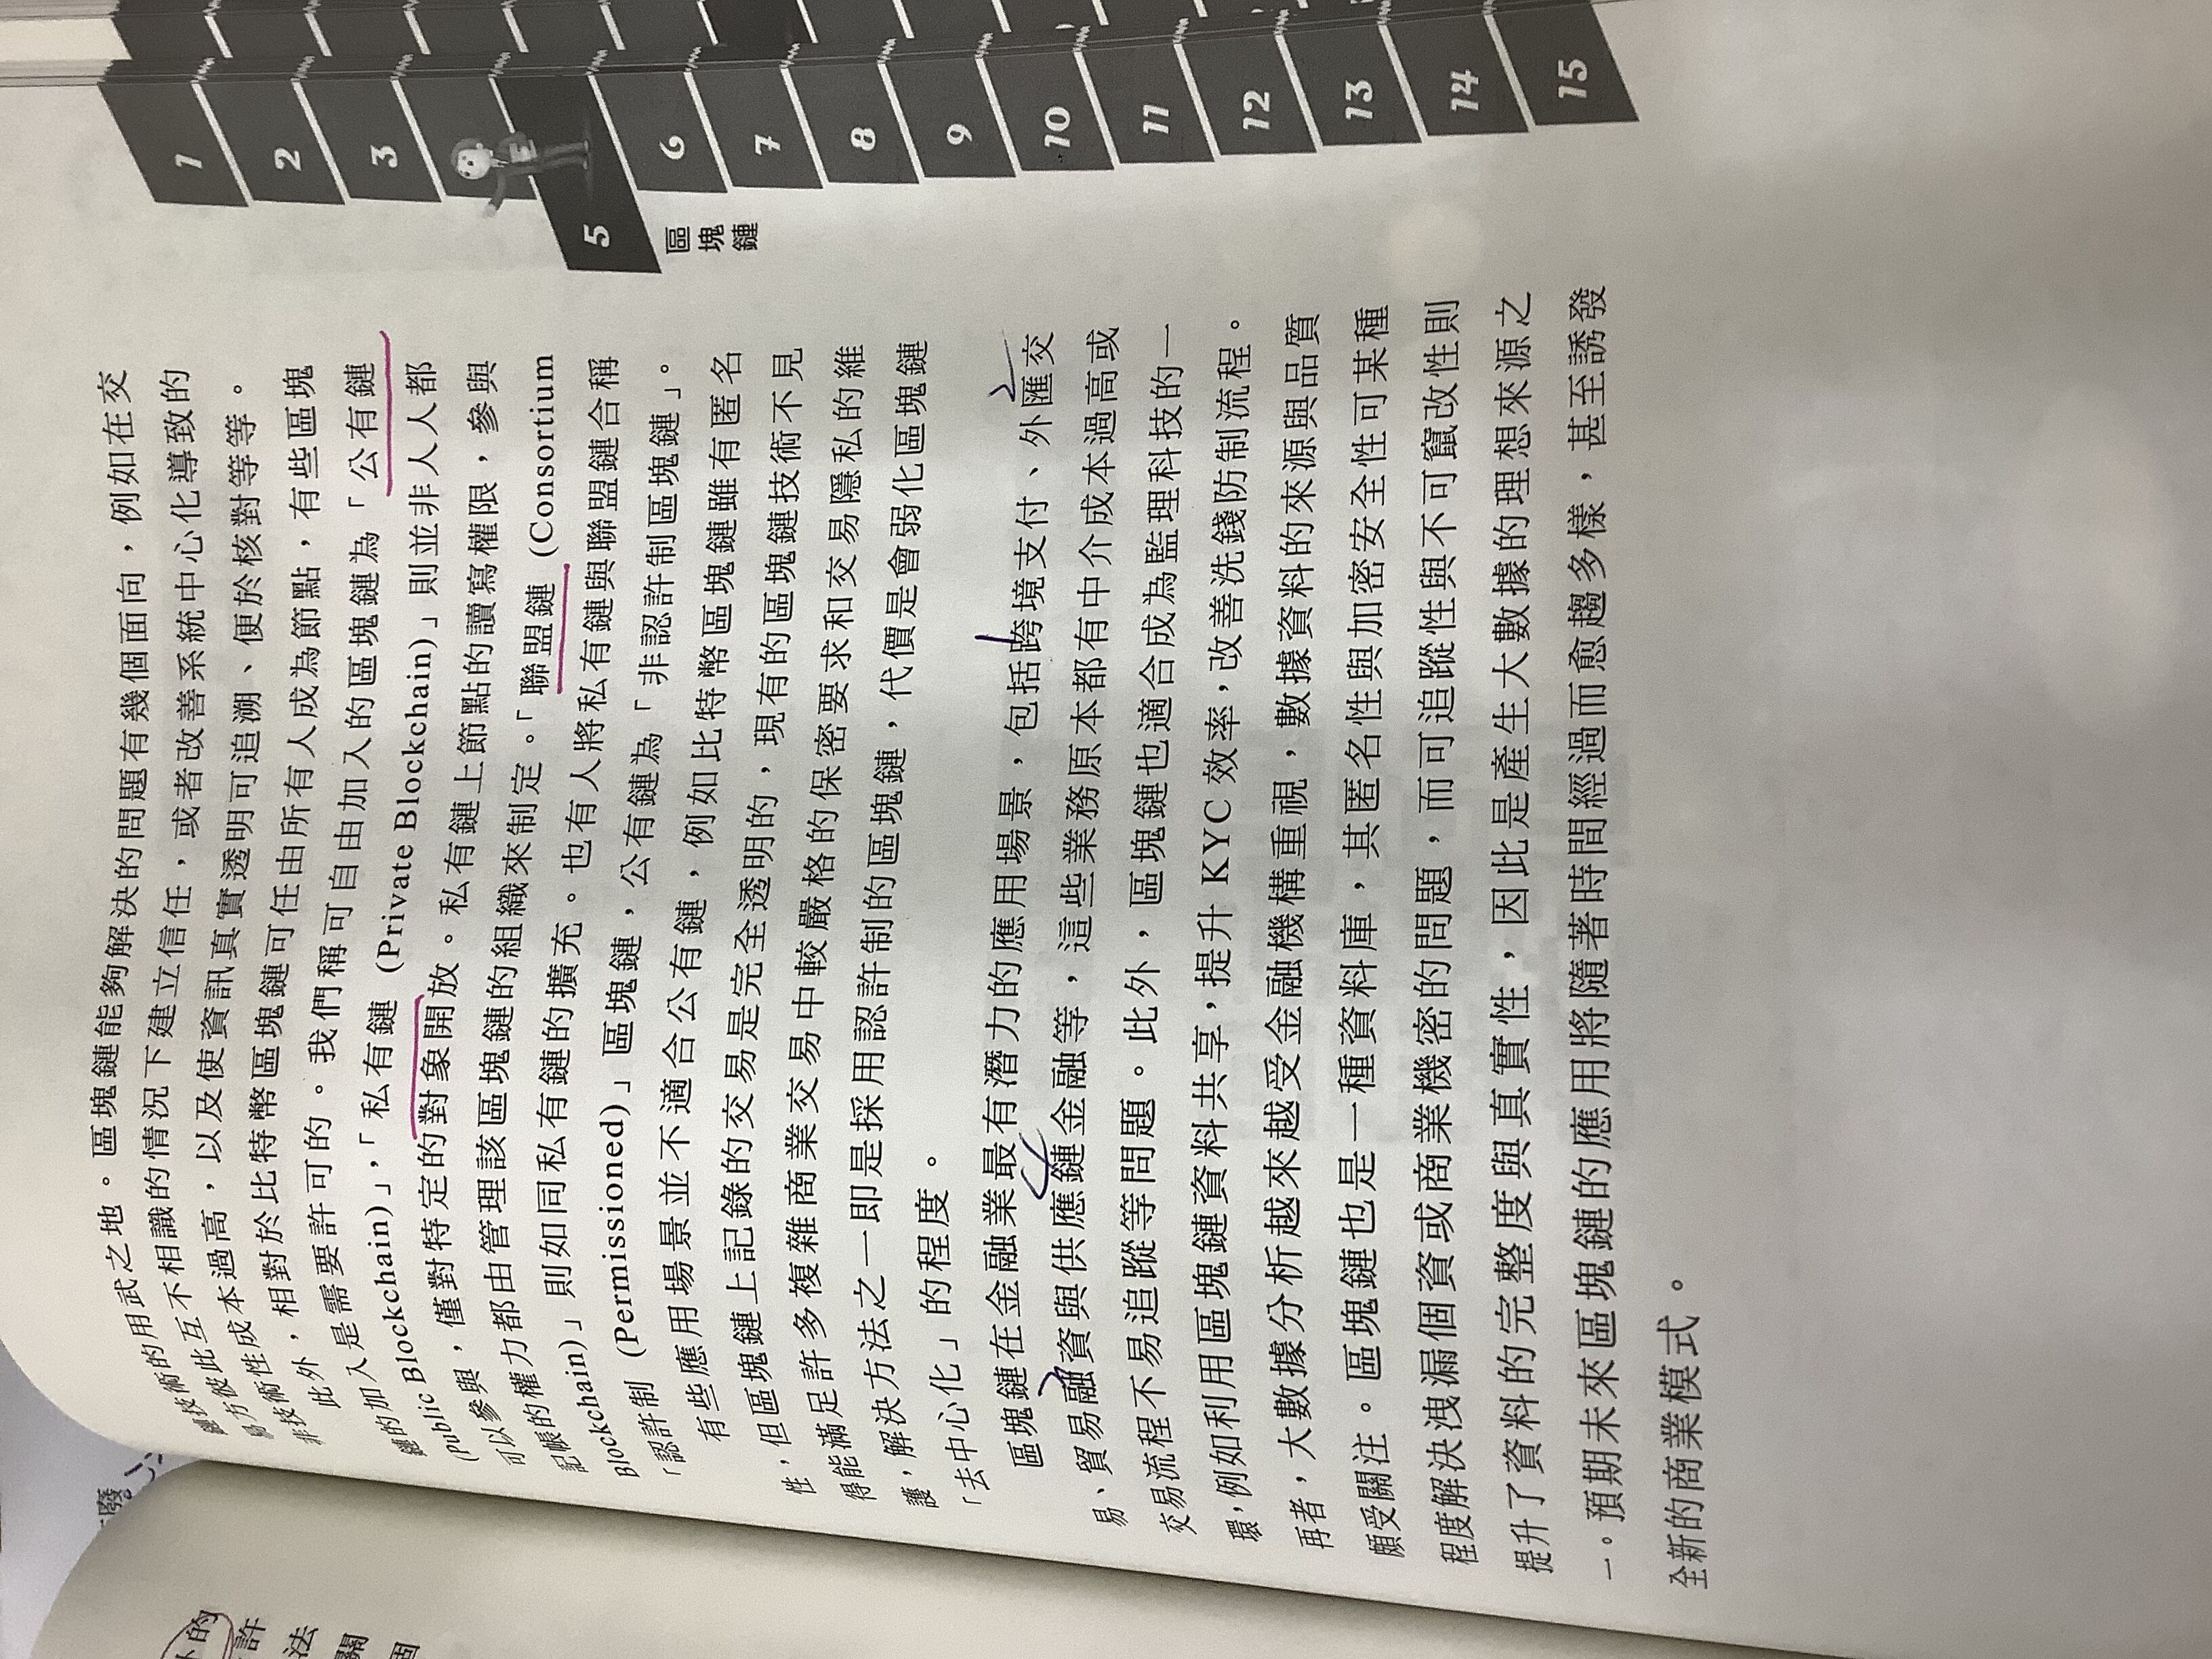 鏈技術的用武之地。區塊鏈能夠解決的問題有幾個面向，例如在交
易方彼此互不相識的情況下建立信任，或者改善系統中心化導致的
非技術性成本過高，以及使資訊真實透明可追溯、便於核對等等。
此外，相對於比特幣區塊鏈可任由所有人成為節點，有些區塊
鏈的加入是需要許可的。我們稱可自由加入的區塊鏈為「公有鏈
(Public Blockchain)」，「私有鏈 (Private Blockchain)」則並非人人都
可以參與，僅對特定的對象開放。私有鏈上節點的讀寫權限，參與
記帳的權力都由管理該區塊鏈的組織來制定。「聯盟鏈 (Consortium
Blockchain)」則如同私有鏈的擴充。也有人將私有鏈與聯盟鏈合稱
「認許制 (Permissioned)」區塊鏈，公有鏈為「非認許制區塊鏈」。
有些應用場景並不適合公有鏈，例如比特幣區塊鏈雖有匿名
性，但區塊鏈上記錄的交易是完全透明的，現有的區塊鏈技術不見
得能滿足許多複雜商業交易中較嚴格的保密要求和交易隱私的維
護，解決方法之一即是採用認許制的區塊鏈，代價是會弱化區塊鏈
「去中心化」的程度。
區塊鏈在金融業最有潛力的應用場景，包括跨境支付、外匯交
易、貿易融資與供應鏈金融等，這些業務原本都有中介成本過高或
交易流程不易追蹤等問題。此外，區塊鏈也適合成為監理科技的一
環，例如利用區塊鏈資料共享，提升 KYC 效率，改善洗錢防制流程。
再者，大數據分析越來越受金融機構重視，數據資料的來源與品質
頗受關注。區塊鏈也是一種資料庫，其匿名性與加密安全性可某種
程度解決洩漏個資或商業機密的問題，而可追蹤性與不可竄改性則
提升了資料的完整度與真實性，因此是產生大數據的理想來源之
一。預期未來區塊鏈的應用將隨著時間經過而愈趨多樣，甚至誘發
全新的商業模式。
1
2
3
5
區塊鏈
6
7
8
9
10
11
12
13
14
15
的
許
法
關
個